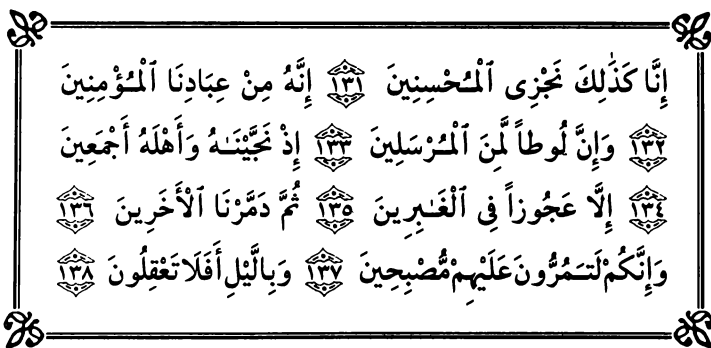 إِنَّا كَذَٰلِكَ نَجْزِى ٱلْمُحْسِنِينَ ١٣١ إِنَّهُ مِنْ عِبَادِنَا ٱلْمُؤْمِنِينَ
١٣٢ وَإِنَّ لُوطاً لَّمِنَ ٱلْمُرْسَلِينَ ١٣٣ إِذْ نَجَّيْنَـٰهُ وَأَهْلَهُ أَجْمَعِينَ
١٣٤ إِلَّا عَجُوزاً فِى ٱلْغَـٰبِرِينَ ١٣٥ ثُمَّ دَمَّرْنَا ٱلْأَخَرِينَ ١٣٦
وَإِنَّكُمْ لَتَـمُرُّونَ عَلَيْهِمْ مُّصْبِحِينَ ١٣٧ وَبِالَّيْلِ أَفَلَا تَعْقِلُونَ ١٣٨